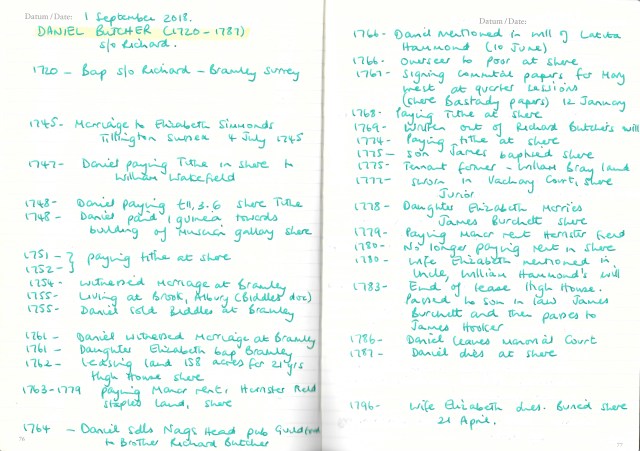 Datum / Date:
1 September 2018.
DANIEL BUTCHER (1720 - 1787)
s/o Richard.
1720 - Bap s/o Richard - Bramley Surrey
1745- Marriage to Elizabeth Simmonds
Tillington Sussex 4 July 1745
1747- Daniel paying Tithe in shere to
William Wakefield
1748- Daniel paying £11.3.6 shere Tithe
1748- Daniel paid 1 guinea towards
building of Musician gallery shere
1751-
1752- } paying tithe at shere
1754- witnessed Marriage at Bramley
1755- Living at Brook, Albury (Biddles doc)
1755- Daniel sold Biddles at Bramley
1761- Daniel witnessed Marriage at Bramley
1761- Daughter Elizabeth bap Bramley
1762- Leasing land 158 acres for 21 yrs
High House shere
1763-1779 paying Manor rent, Hamster Field
staples Land, shere
1764 - Daniel sells Nags Head pub Guildford
to Brother Richard Butcher
76
Datum / Date:
1766- Daniel mentioned in will of Laticia
Hammond (10 June)
1766- Overseer to Poor at shere
1767- Signing committal papers for Mary
West at quarter sessions
(shere Bastardy papers) 12 January
1768- Paying Tithe at shere
1769- Written out of Richard Butcher's will
1774- Paying tithe at shere
1775- son James baptised shere
1775- Tennant farmer - William Bray land
1777- sworn in Vachary Court, shere
Juror
1778- Daughter Elizabeth Marries
James Burchett shere
1779- Paying Manor rent Hamster field
1780- No longer paying rent in shere
1780- Wife Elizabeth mentioned in
Uncle, William Hammond's will
1783- End of lease High House.
Passed to son in law James
Burchett and then passes to
James Hooker
1786- Daniel leaves Manorial Court
1787- Daniel dies at shere
1796- Wife Elizabeth dies. Buried shere
21 April.
77